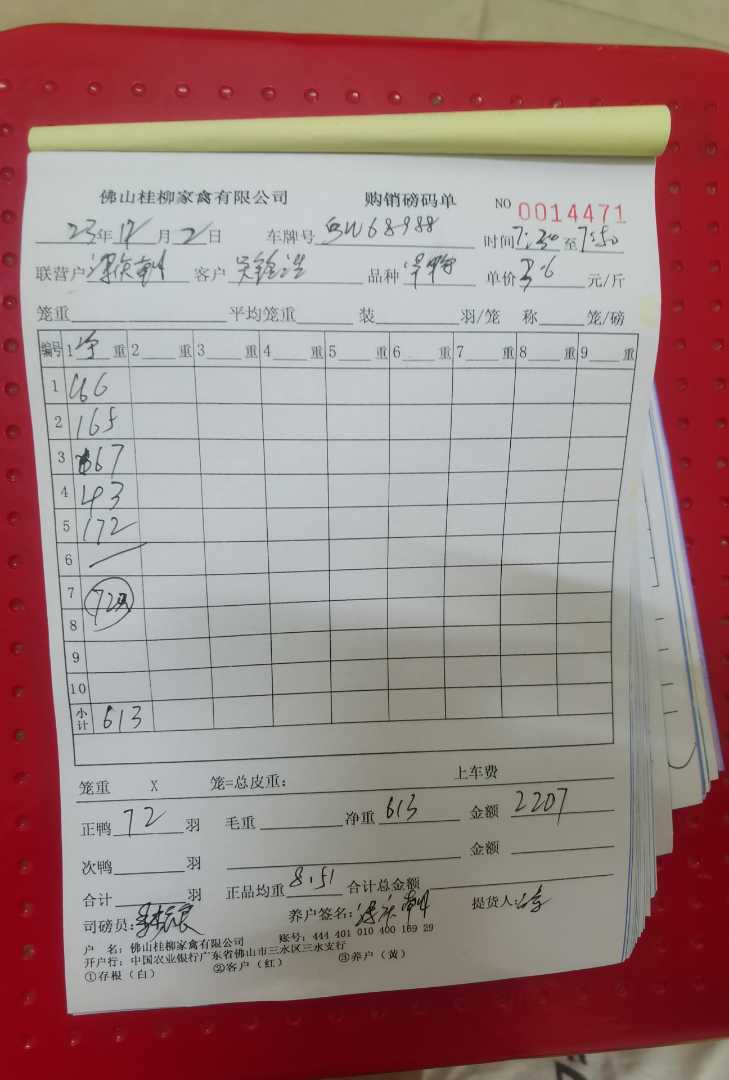 佛山桂柳家禽有限公司 购销磅码单 NO 0014471
23年12月2日 车牌号 W68988 时间7:30至7:50
联营户 客户 品种 单价3.6元/斤
笼重 平均笼重 装 羽/笼 称 笼/磅
编号 1净重 2 重 3 重 4 重 5 重 6 重 7 重 8 重 9 重
1 66
2 165
3 67
4 43
5 172
6
7 72
8
9
10
小计 613
笼重 X 笼=总皮重: 上车费
正鸭 72 羽 毛重 净重 613 金额 2207
次鸭 羽 金额
合计 羽 正品均重 8.51 合计总金额
司磅员: 养户签名: 提货人:
户 名: 佛山桂柳家禽有限公司 账号: 444 401 010 400 169 29
开户行: 中国农业银行广东省佛山市三水区三水支行
①存根(白) ②客户(红) ③养户(黄)